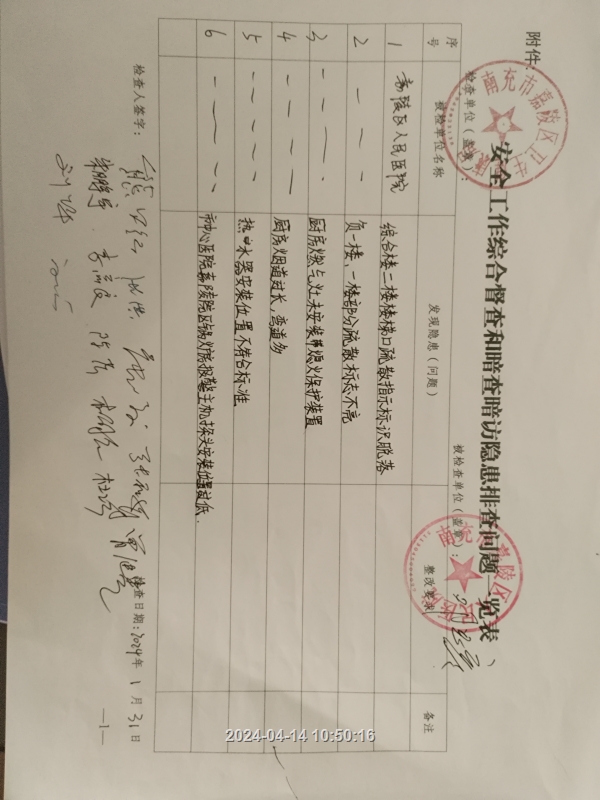 附件:
安全工作综合督查和暗查暗访隐患排查问题一览表
检查单位(盖章):
被检查单位(盖章):
南充市嘉陵区卫
序号 被检单位名称 发现隐患(问题) 整改要求 备注
1 嘉陵区人民医院 综合楼二楼楼梯口疏散指示标识脱落
2 一 一 一 负一楼,一楼部分疏散标志不亮
3 厨房燃气灶未安装熄火保护装置
4 厨房烟道过长,弯道多
5 热水器安装位置不符合标准
6 市中心医院嘉陵院区锅炉房报警主机探头安装位置过低.
检查人签字:
检查日期:2024年1月31日
—1—
2024-04-14 10:50:16